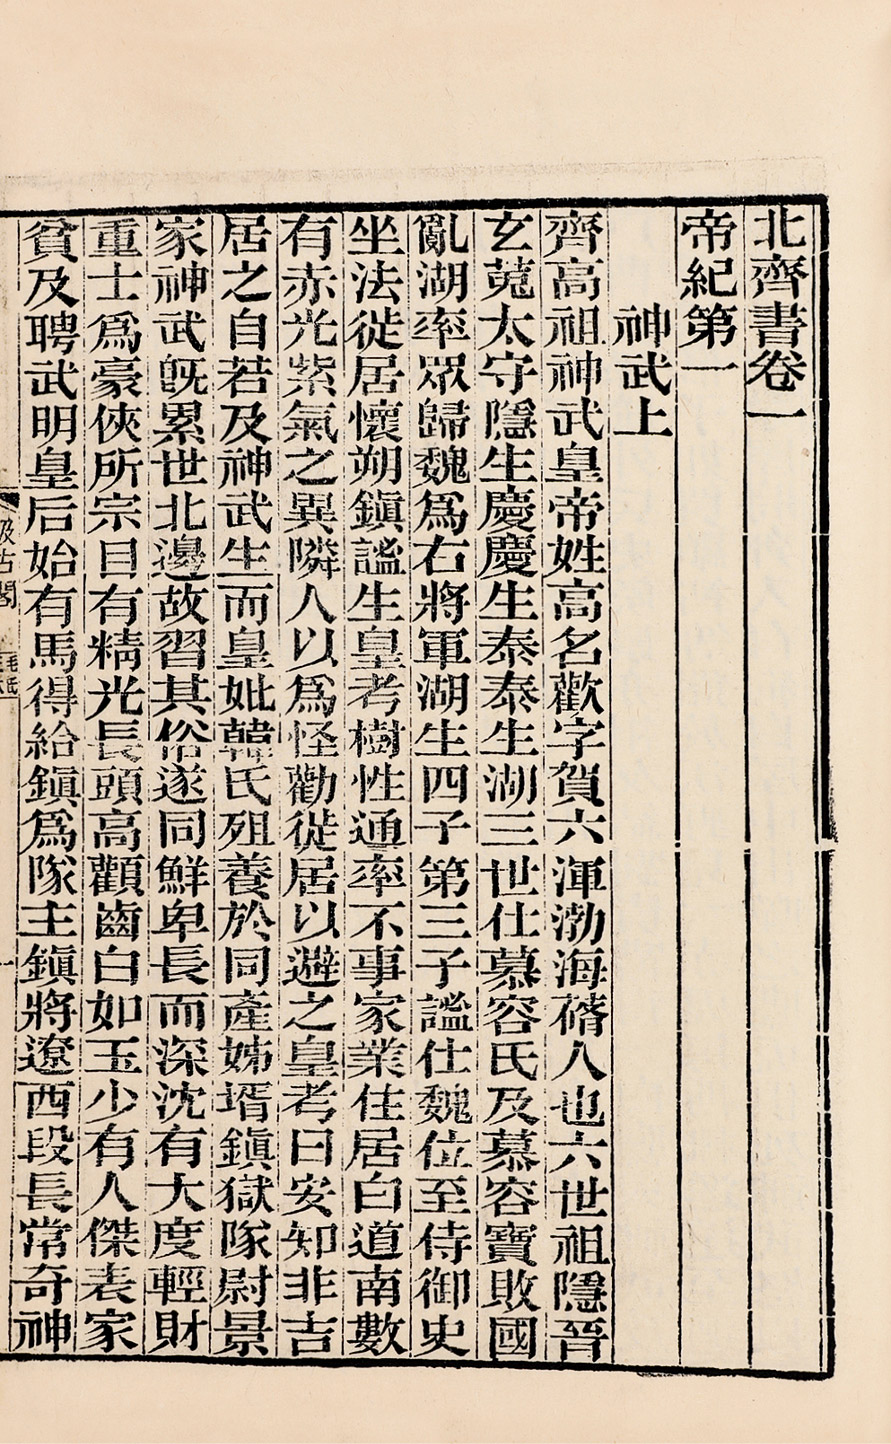 北齊書卷一
帝紀第一
神武上
齊高祖神武皇帝姓高名歡字賀六渾渤海蓨人也六世祖隱晉
玄菟太守隱生慶慶生泰泰生湖三世仕慕容氏及慕容寶敗國
亂湖率眾歸魏爲右將軍湖生四子第三子謐仕魏位至侍御史
坐法徙居懷朔鎭謐生皇考樹性通率不事家業住居白道南數
有赤光紫氣之異隣人以爲怪勸徙居以避之皇考曰安知非吉
居之自若及神武生而皇妣韓氏殂養於同產姊壻鎭獄隊尉景
家神武旣累世北邊故習其俗遂同鮮卑長而深沈有大度輕財
重士爲豪俠所宗目有精光長頭高顴齒白如玉少有人傑表家
貧及聘武明皇后始有馬得給鎭爲隊主鎭將遼西段長常奇神
汲古閣
毛氏
一